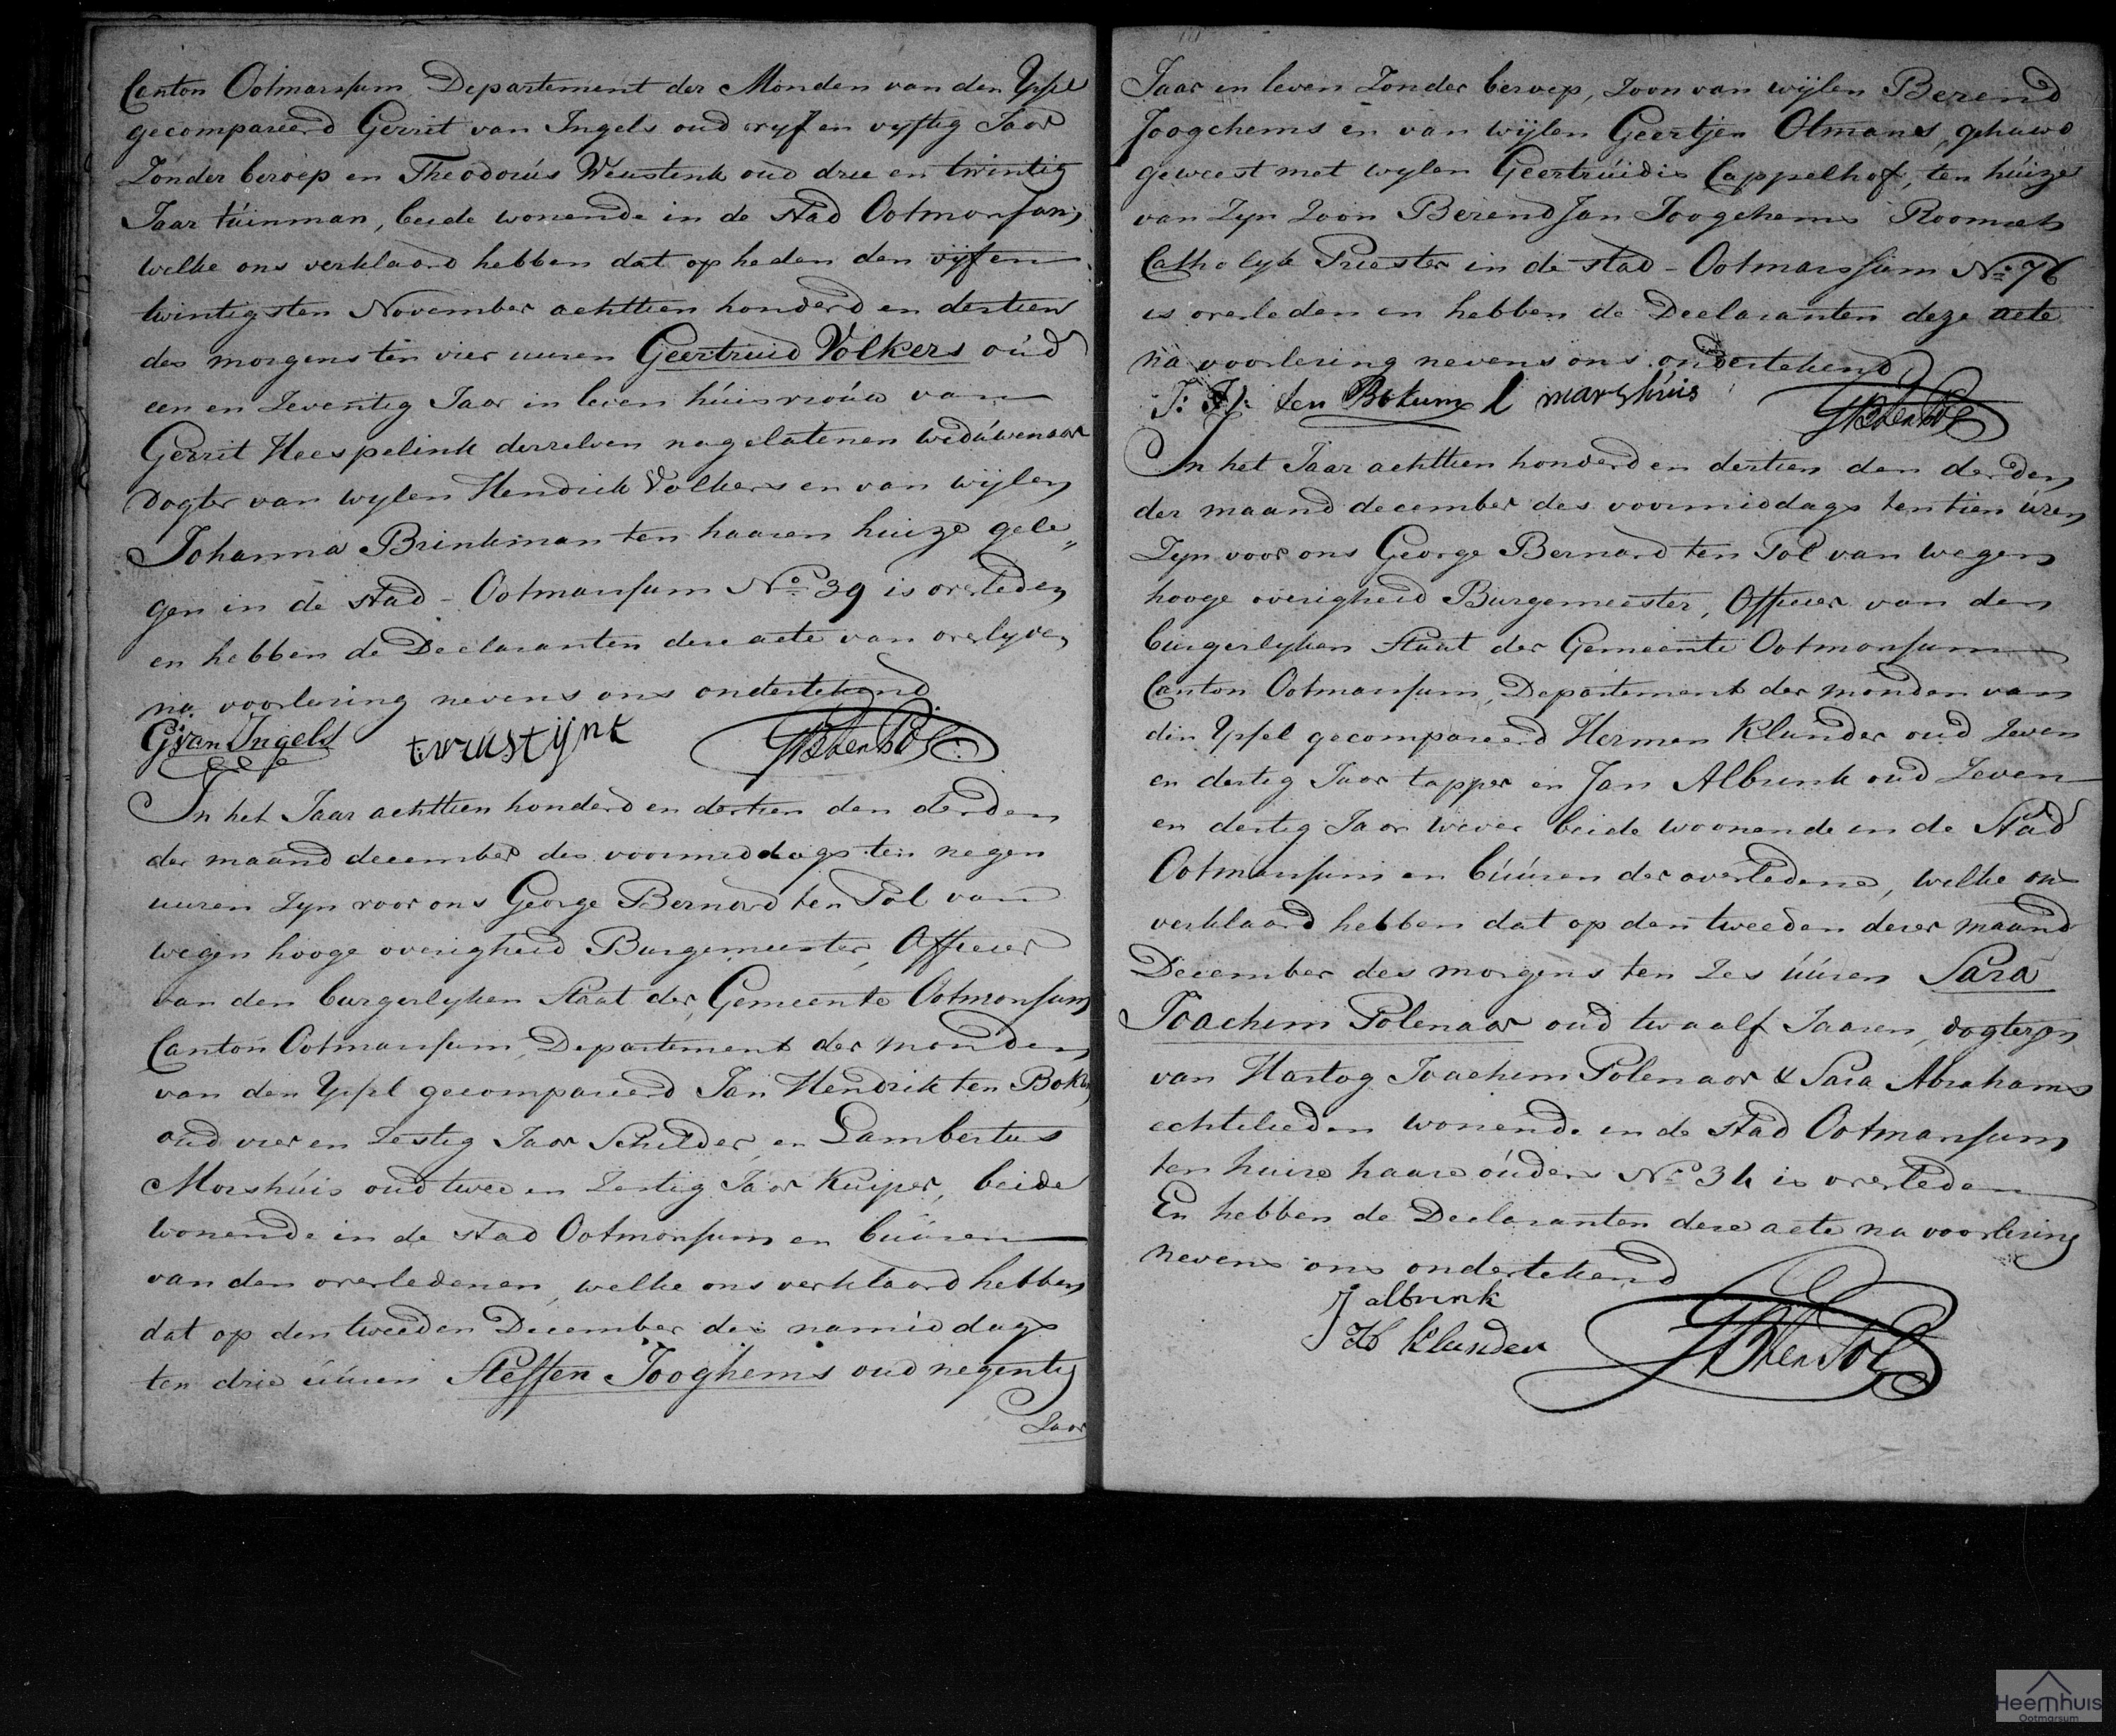 Canton Ootmarssum, Departement der Monden van den Yssel
gecompareerd Gerrit van Ingels oud vyf en vyftig Jaar
Zonder beroep en Theodorus Weustink oud drie en twintig
Jaar tuinman, beide wonende in de stad Ootmarssum,
welke ons verklaard hebben dat op heden den vijf en
twintigsten November achttien honderd en dertien
des morgens ten vier uuren Geertruid Volkers oud
een en Zeventig Jaar in leven huisvrouw van
Gerrit Heespelink derzelven nagelatenen weduwenaar
dogter van wylen Hendrik Volkers en van wijlen
Johanna Brinkman ten haaren huize gele„
gen in de stad - Ootmarssum No. 39 is overleden
en hebben de Declaranten dese acte van overlyden
na voorlesing nevens ons ondertekend
G: van Ingels t wustijnk GB ten Pol
In het Jaar achttien honderd en dertien den derden
der maand december des voormiddags ten negen
uuren Zyn voor ons George Bernard ten Pol van
wegen hooge overigheid Burgemeester, Officier
van den burgerlyken Staat der Gemeente Ootmarssum
Canton Ootmarssum, Departement der monden
van den Yssel gecompareerd Jan Hendrik ten Bok
oud vier en Zestig Jaar Schilder, en Lambertus
Morshuis oud twee en Zestig Jaar Kuiper, beide
wonende in de stad Ootmarssum en buuren
van den overledenen, welke ons verklaard hebben
dat op den tweeden December des namiddags
ten drie uuren Steffen Jooghems oud negentig
Jaar
Jaar in leven Zonder beroep, Zoon van wijlen Berend
Joogchems en van wijlen Geertjen Otmans, gehuwd
geweest met wylen Geertruidis Cappelhof, ten huize
van Zyn Zoon Berend Jan Joogchems Roomsch
Catholyk Priester in de stad - Ootmarssum No. 76
is overleden en hebben de Declaranten deze acte
na voorlesing nevens ons ondertekend
J: H: ten Bokum l marshuis GB ten Pol
In het Jaar achttien honderd en dertien den derden
der maand december des voormiddags ten tien uren
Zyn voor ons George Bernard ten Pol van wegen
hooge overigheid Burgemeester, Officier van den
burgerlyken Staat der Gemeente Ootmarssum
Canton Ootmarssum, Departement der monden van
den Yssel gecompareerd Hermen Klunder oud Zeven
en dertig Jaar tapper en Jan Albrink oud Zeven
en dertig Jaar wever beide woonende in de Stad
Ootmarssum en buuren der overledene, welke ons
verklaard hebben dat op den tweeden deser maand
December des morgens ten Zes uuren Sara
Joachim Polenaar oud twaalf Jaaren, dogter
van Hartog Joachim Polenaar & Sara Abrahams
echtelieden wonende in de stad Ootmarssum
ten huise haare ouders No. 34 is overleden
En hebben de Declaranten dese acte na voorlesing
nevens ons ondertekend
J albrink
H klunder GB ten Pol
Heemhuis
Ootmarsum